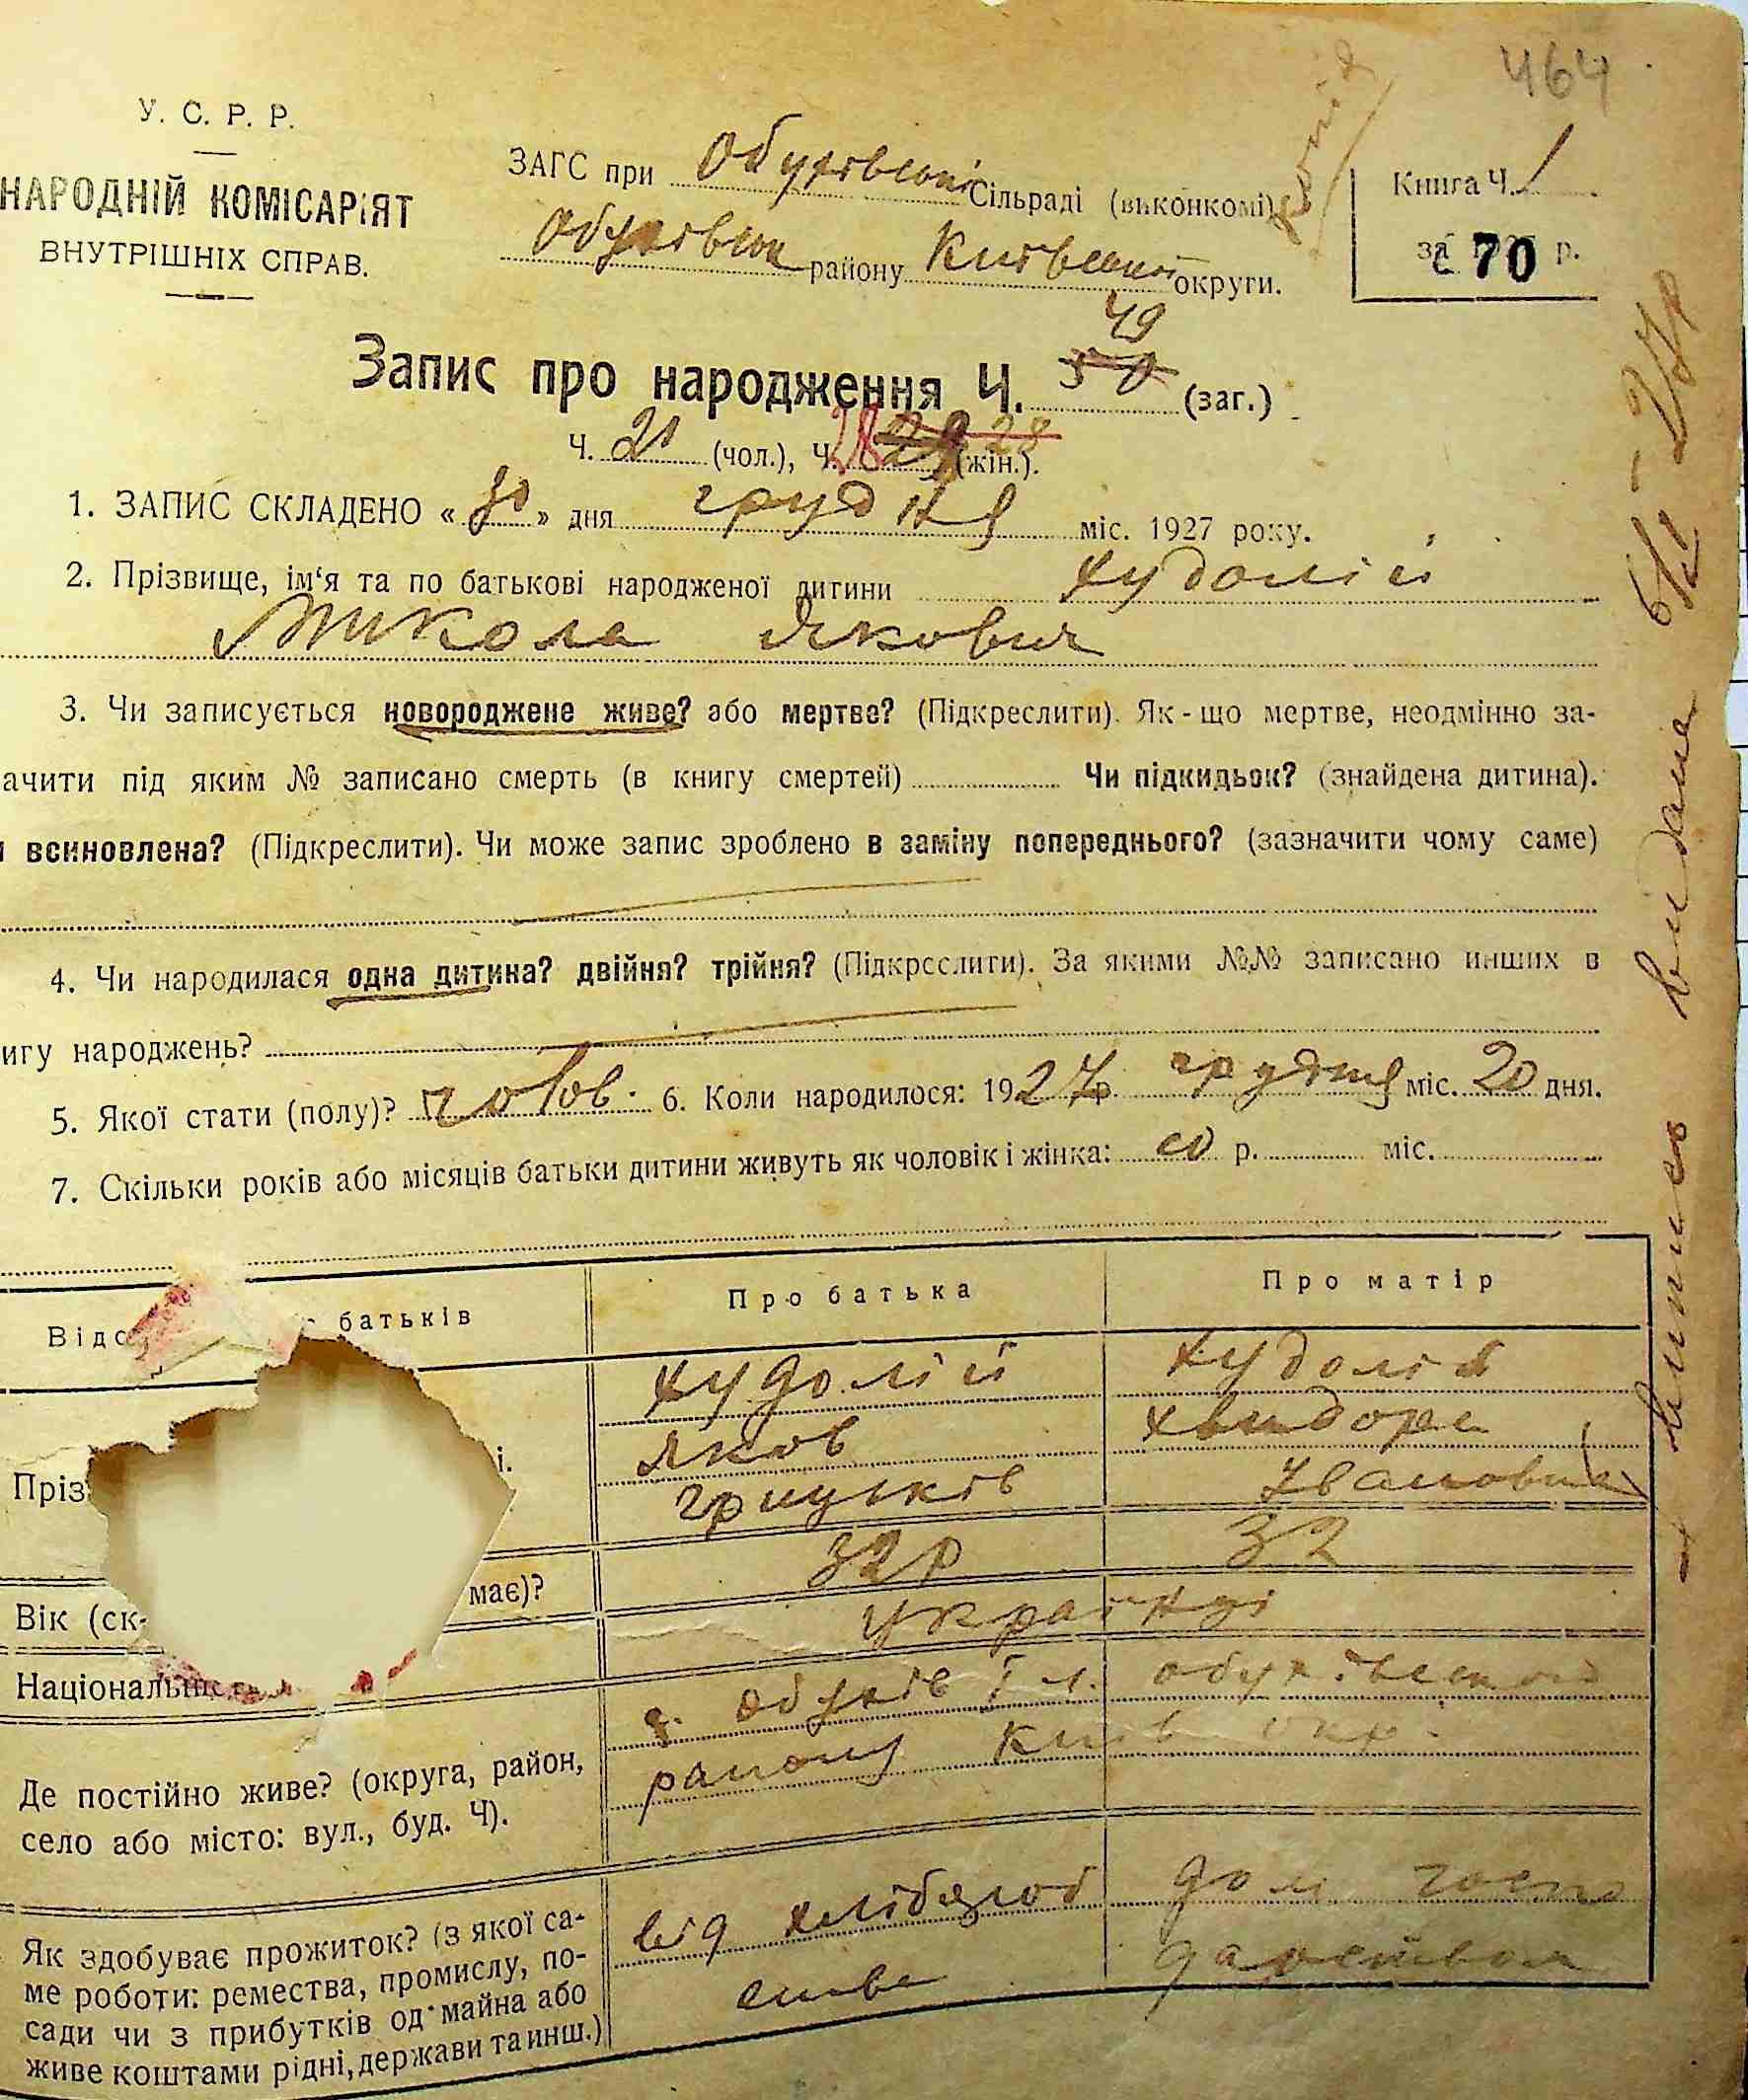 464
У. С. Р. Р.
НАРОДНІЙ КОМІСАРІЯТ
ВНУТРІШНІХ СПРАВ.
ЗАГС при Обухівській Сільраді (виконкомі)
Обухівськ району Київської округи.
Книга Ч. 1
за 70 р.
49
Запис про народження Ч. 50 (заг.)
Ч. 21 (чол.), Ч. 28 29 28 (жін.).
1. ЗАПИС СКЛАДЕНО « 30 » дня грудня міс. 1927 року.
2. Прізвище, ім‘я та по батькові народженої дитини Худолій
Микола Якович
3. Чи записується новороджене живе? або мертве? (Підкреслити). Як-що мертве, неодмінно за-
ачити під яким № записано смерть (в книгу смертей) Чи підкидьок? (знайдена дитина).
и всиновлена? (Підкреслити). Чи може запис зроблено в заміну попереднього? (зазначити чому саме)
4. Чи народилася одна дитина? двійня? трійня? (Підкреслити). За якими №№ записано инших в
игу народжень?
5. Якої стати (полу)? чолов. 6. Коли народилося: 1927 р. грудня міс. 20 дня.
7. Скільки років або місяців батьки дитини живуть як чоловік і жінка: р. міс.
Відо батьків Про батька Про матір
Худолій Худолій
Яков
Пріз і. Грицьків Івановна
Вік (ск- має)? 32 р 32
Національність українці
Де постійно живе? (округа, район, село або місто: вул., буд. Ч).
Обухів Обухівського
району Київ окр.
Як здобуває прожиток? (з якої са-
ме роботи: ремества, промислу, по-
сади чи з прибутків од майна або
живе коштами рідні, держави та инш.)
від хлібороб
ства
дом госпо
дарством
виписю видана